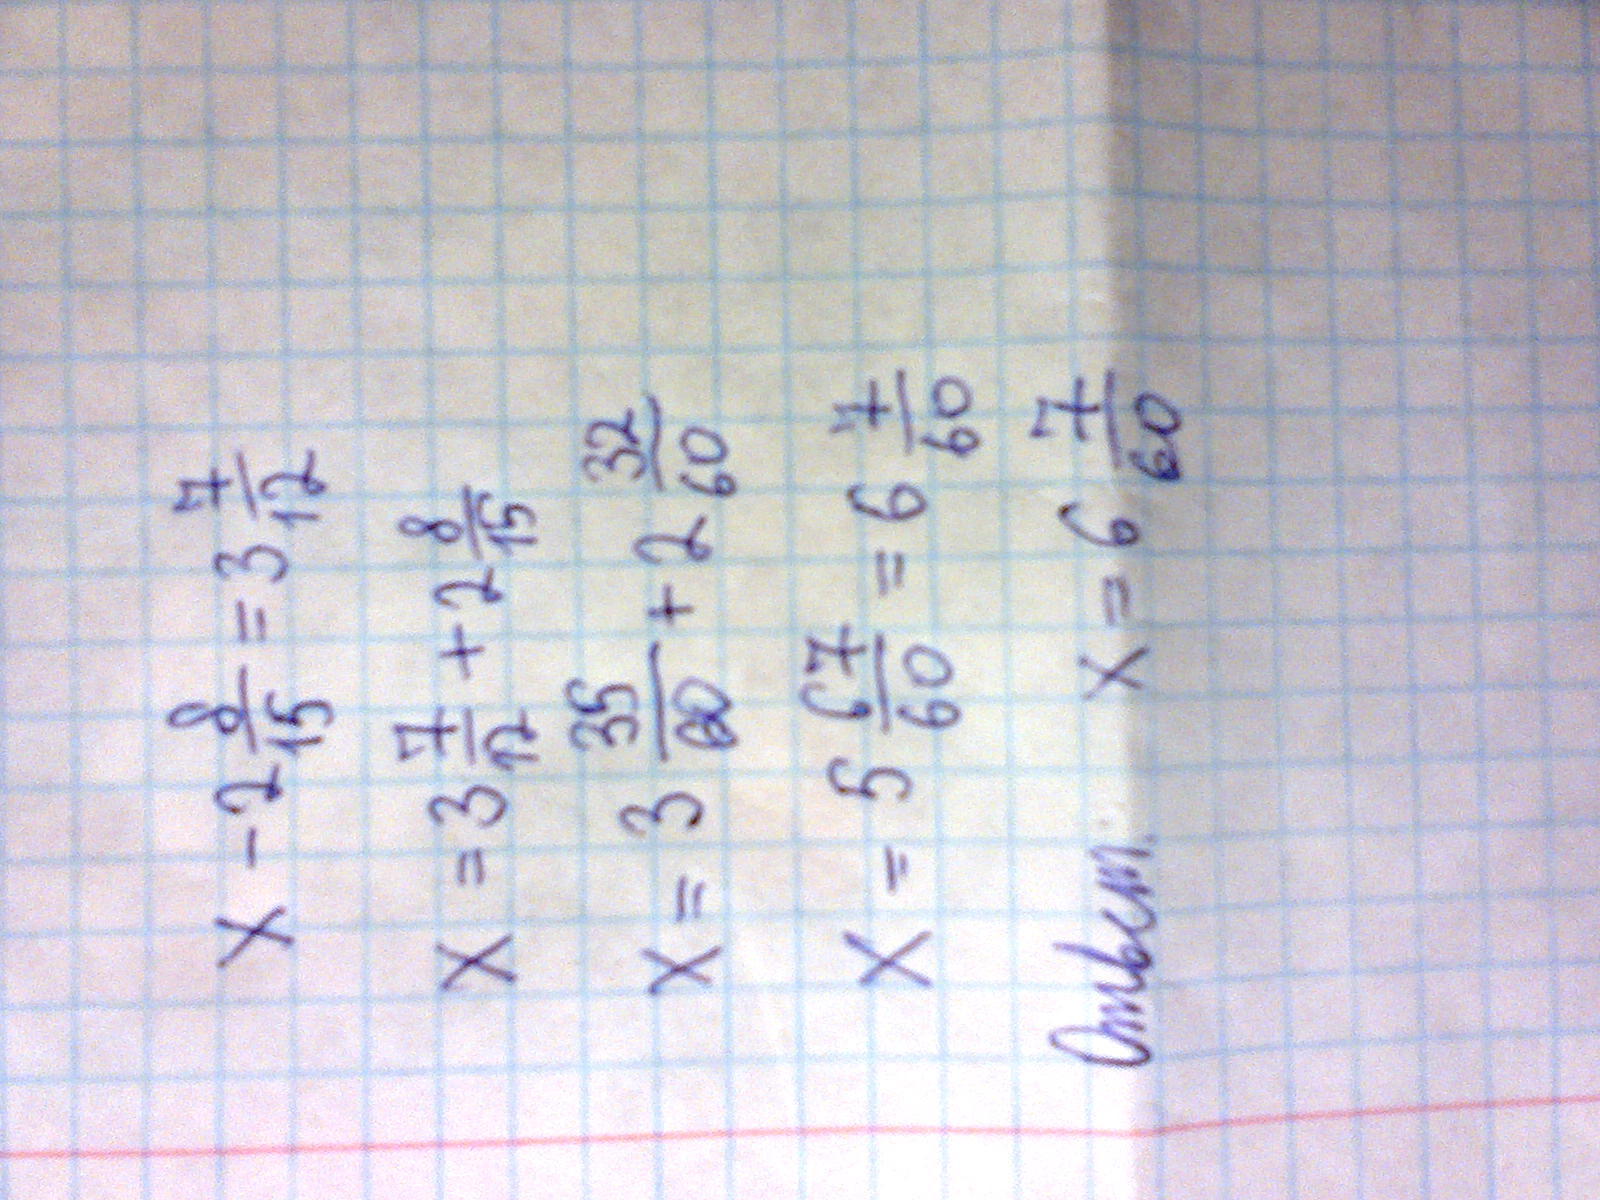 x - 2 8/15 = 3 7/12
x = 3 7/12 + 2 8/15
x = 3 35/60 + 2 32/60
x = 5 67/60 = 6 7/60
Ответ: x = 6 7/60